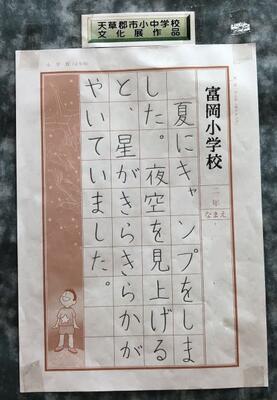 天草郡市小中学校
文化展作品
富岡小学校
二年
なまえ
夏にキャンプをしま
した。夜空を見上げる
と、星がきらきらかが
やいていました。